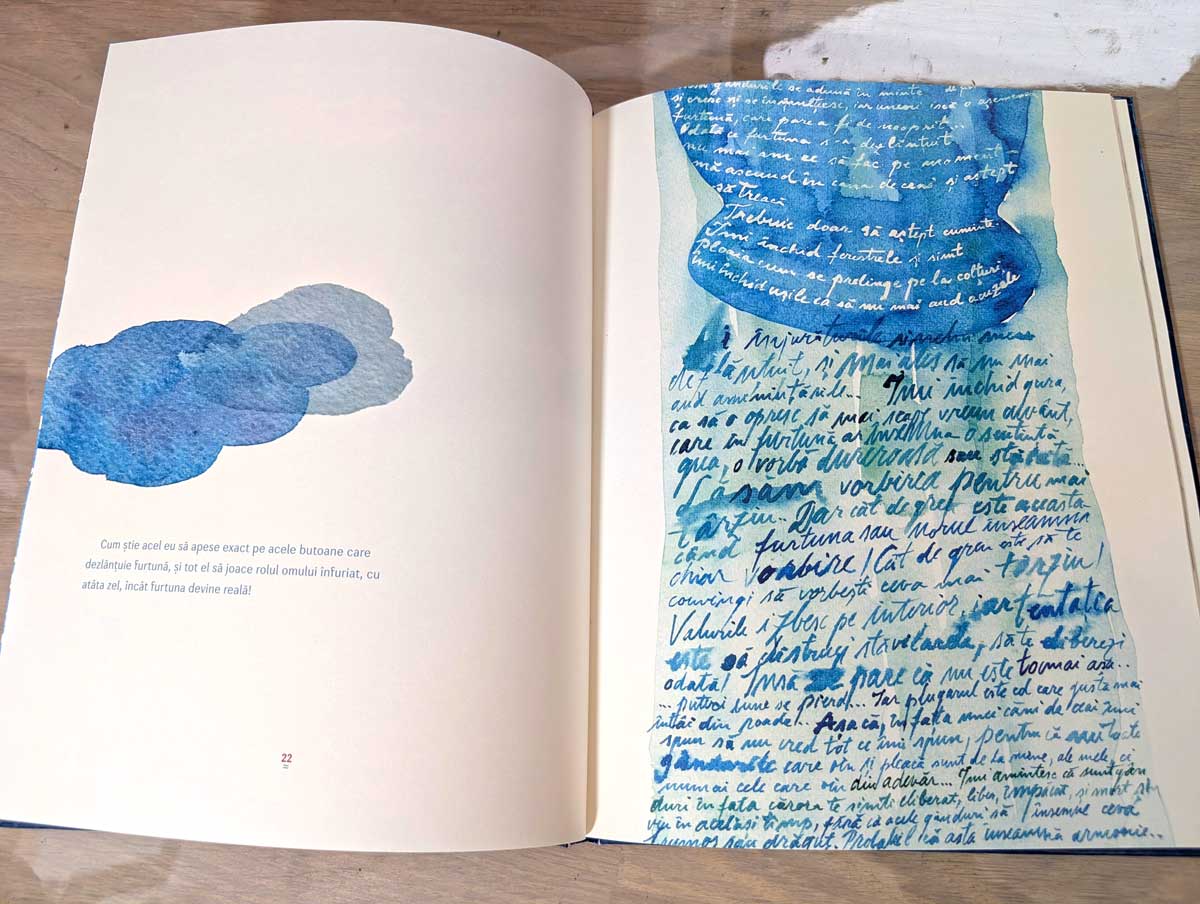 Cum știe acel eu să apese exact pe acele butoane care
dezlănțuie furtună, și tot el să joace rolul omului înfuriat, cu
atâta zel, încât furtuna devine reală!
22
gândurile se adună în minte
și cresc și se înmulțesc, iar uneori iscă o asemenea
furtună, care pare a fi de neoprit...
Odată ce furtuna s-a dezlănțuit
nu mai am ce să fac pe moment –
mă ascund în cana de ceai și aștept
să treacă
Trebuie doar să aștept cuminte.
Îmi închid ferestrele și simt
ploaia cum se prelinge pe la colțuri,
îmi închid ușile ca să nu mai aud acuzele
și înjurăturile
și mai ales să nu mai
aud amenințările... Îmi închid gura,
ca să o opresc să mai scape vreun cuvânt,
care în furtună ar însemna o sentință
grea, o vorbă dureroasă sau
Lăsăm vorbirea pentru mai
târziu... Dar cât de greu este aceasta
când furtuna sau norul înseamnă
chiar vorbire! Cât de greu este să te
convingi să vorbești ceva mai târziu!
Valurile izbesc pe interior, iar tentația
este să distrugi stăvilarele, să te eliberezi
odată! Însă se pare că nu este tocmai așa...
... puteri bune se pierd... Iar plugarul este cel care gustă mai
întâi din roade... Așa că, în fața unei căni de ceai îmi
spun să nu cred tot ce îmi spun, pentru că nu toate
gândurile care vin și pleacă sunt de la mine, ale mele, ci
numai cele care vin din adevăr... Îmi amintesc că sunt gân-
duri în fața cărora te simți eliberat, liber, împăcat, și mort și
viu în același timp, fără ca acele gânduri să însemne ceva
frumos sau drăguț. Probabil că asta înseamnă armonie...